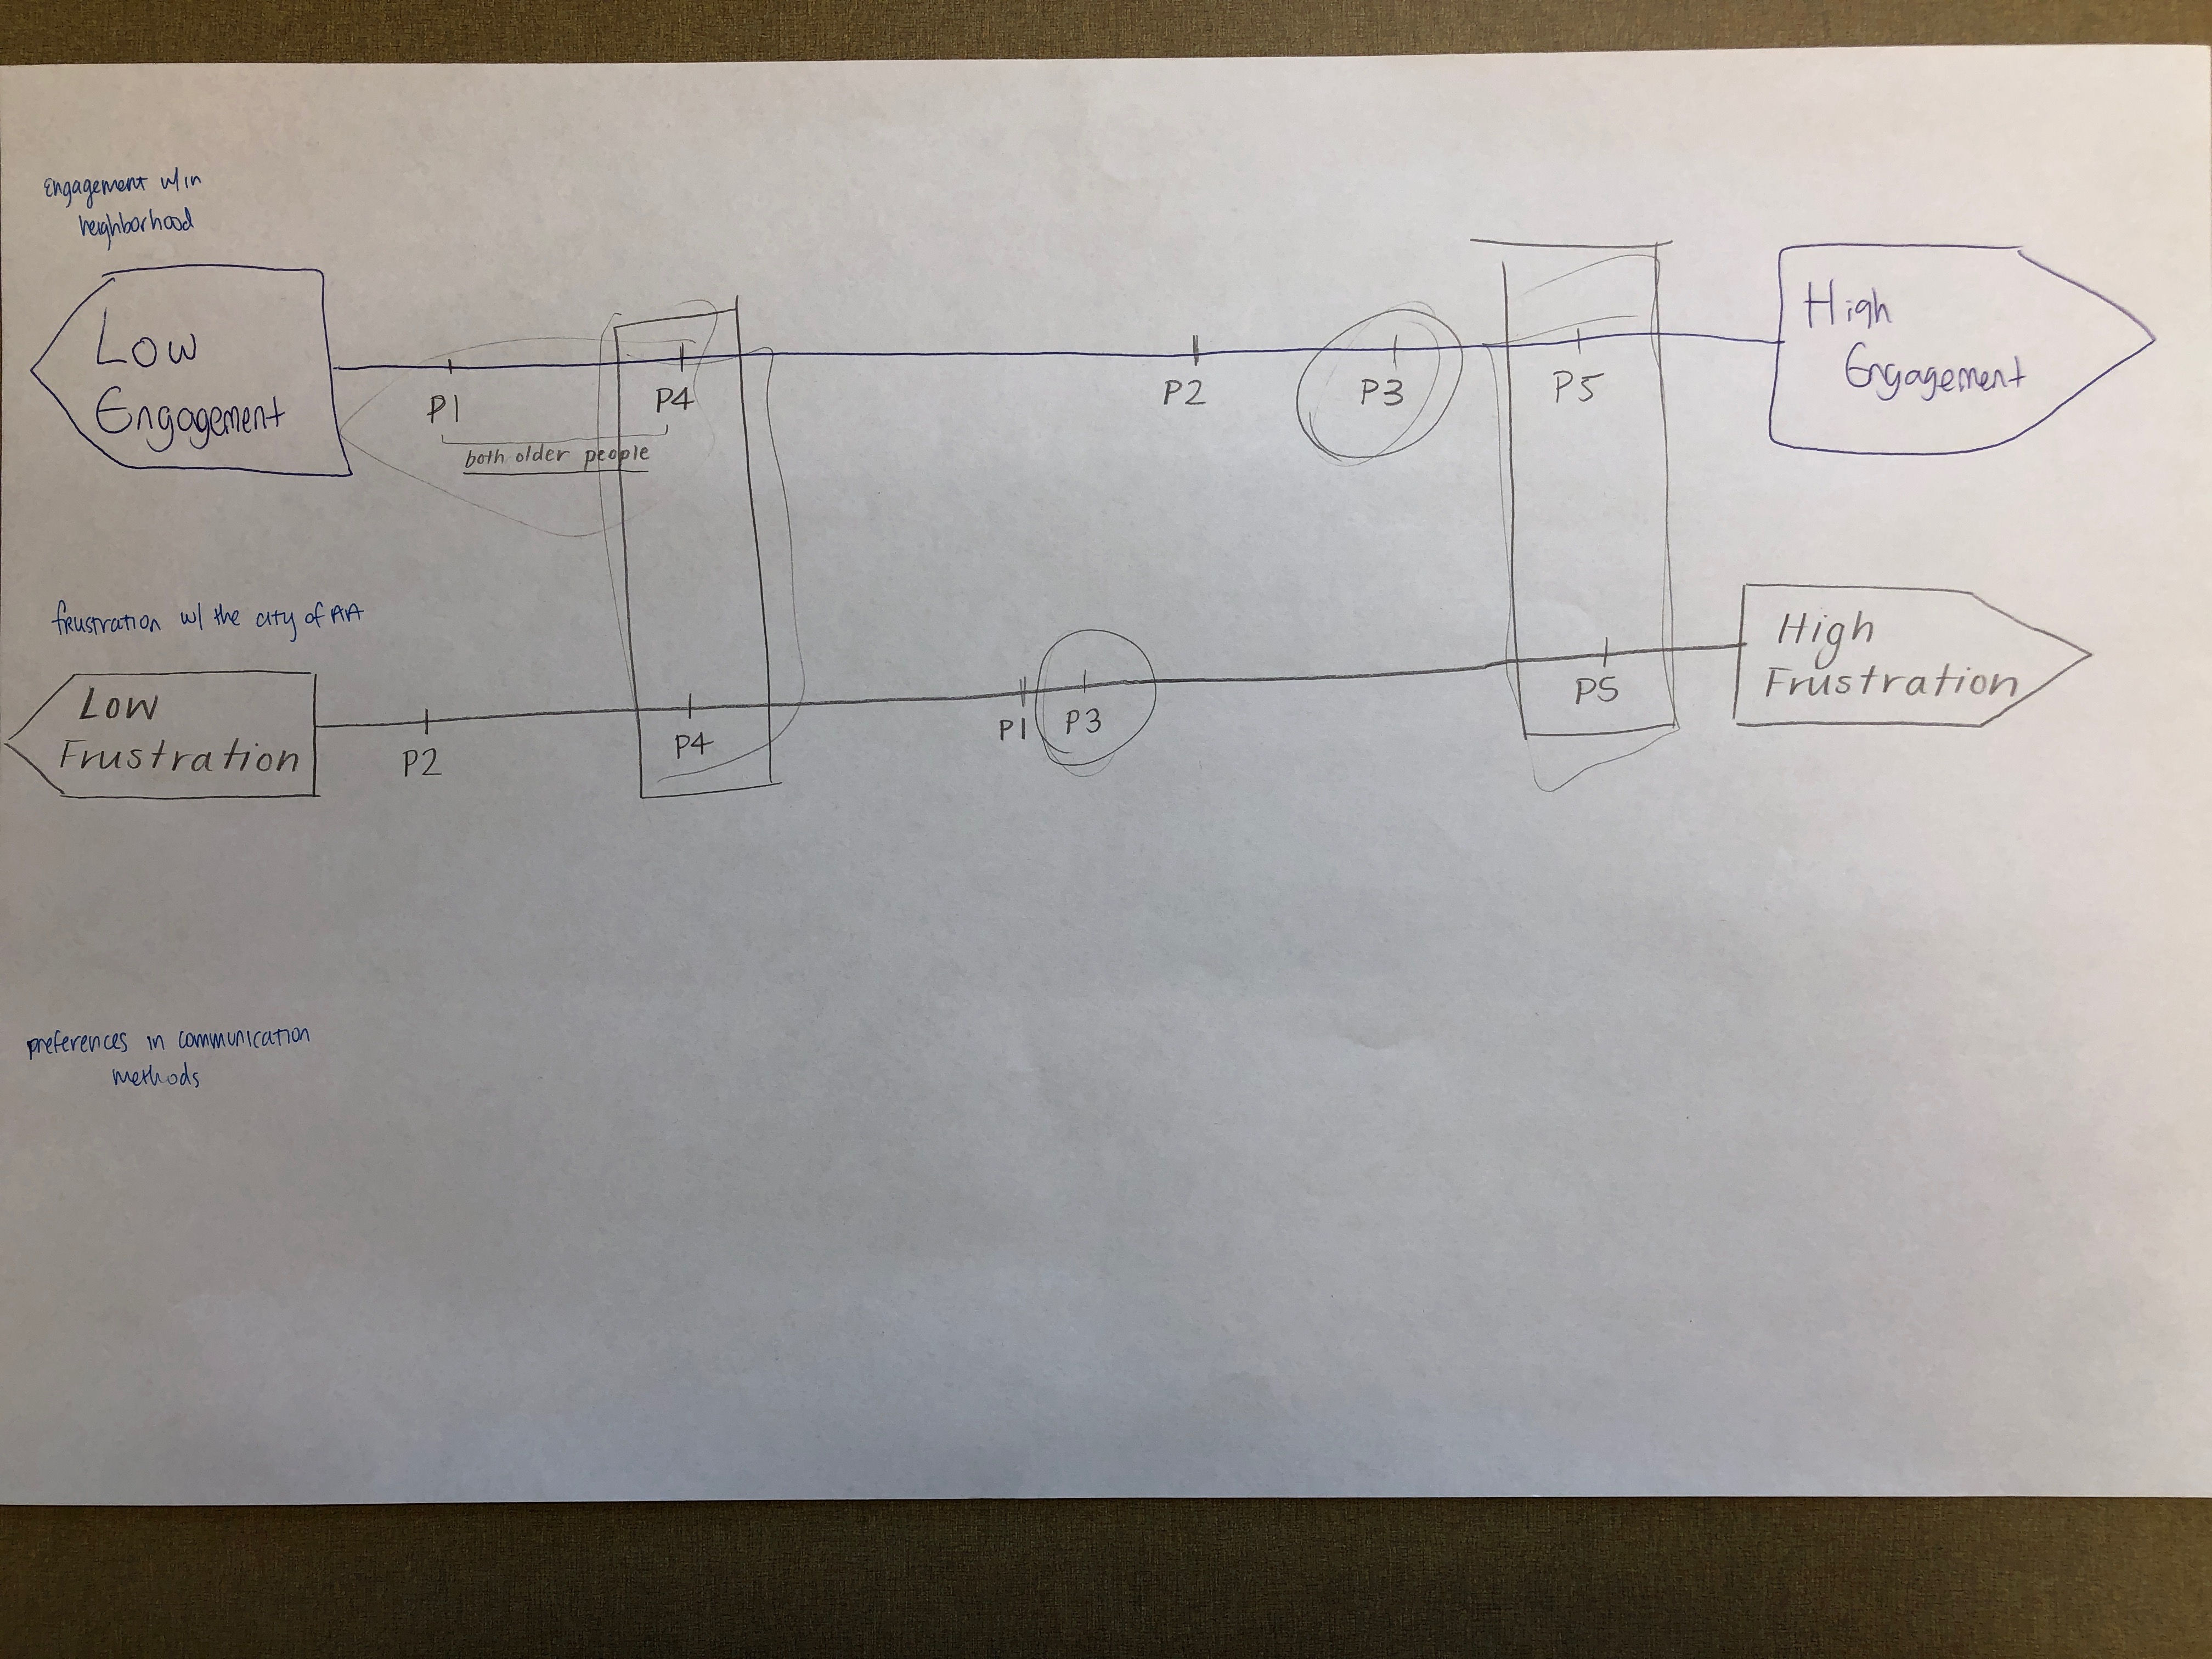 Engagement w/in
neighborhood
Low
Engagement
P1
P4
P2
P3
P5
High
Engagement
both older people
frustration w/ the city of AA
Low
Frustration
P2
P4
P1
P3
P5
High
Frustration
preferences in communication
methods